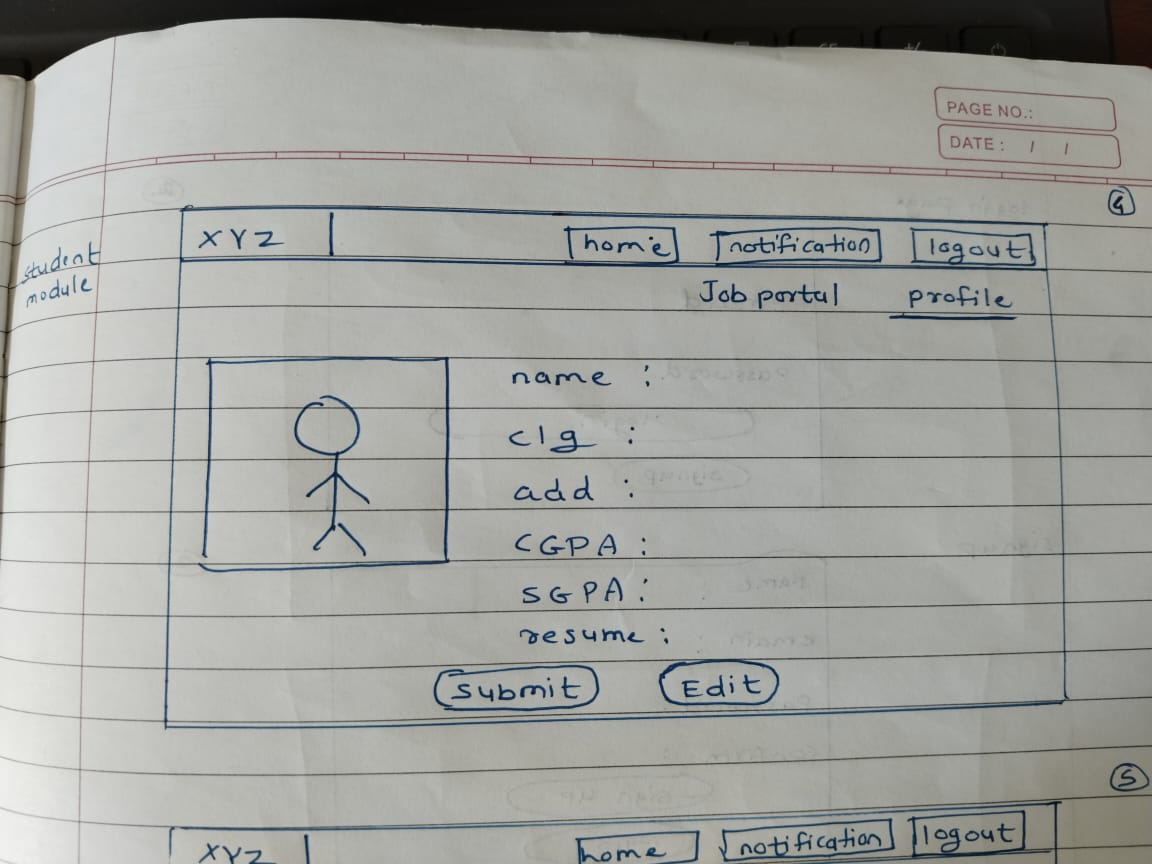 PAGE NO.:
DATE: / /
4
student
module
XYZ home notification logout
Job portal profile
name :
clg :
add :
CGPA :
SGPA :
resume :
Submit Edit
5
XYZ home notification logout